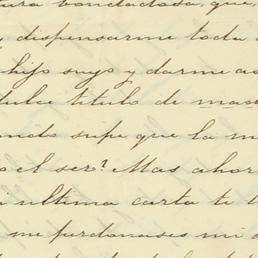 bondadosa, que,
dispensarme toda
hijo suyo y darme
dulce titulo de
supe que la m
el ser? Mas ahor
ultima carta te
me perdonases mi